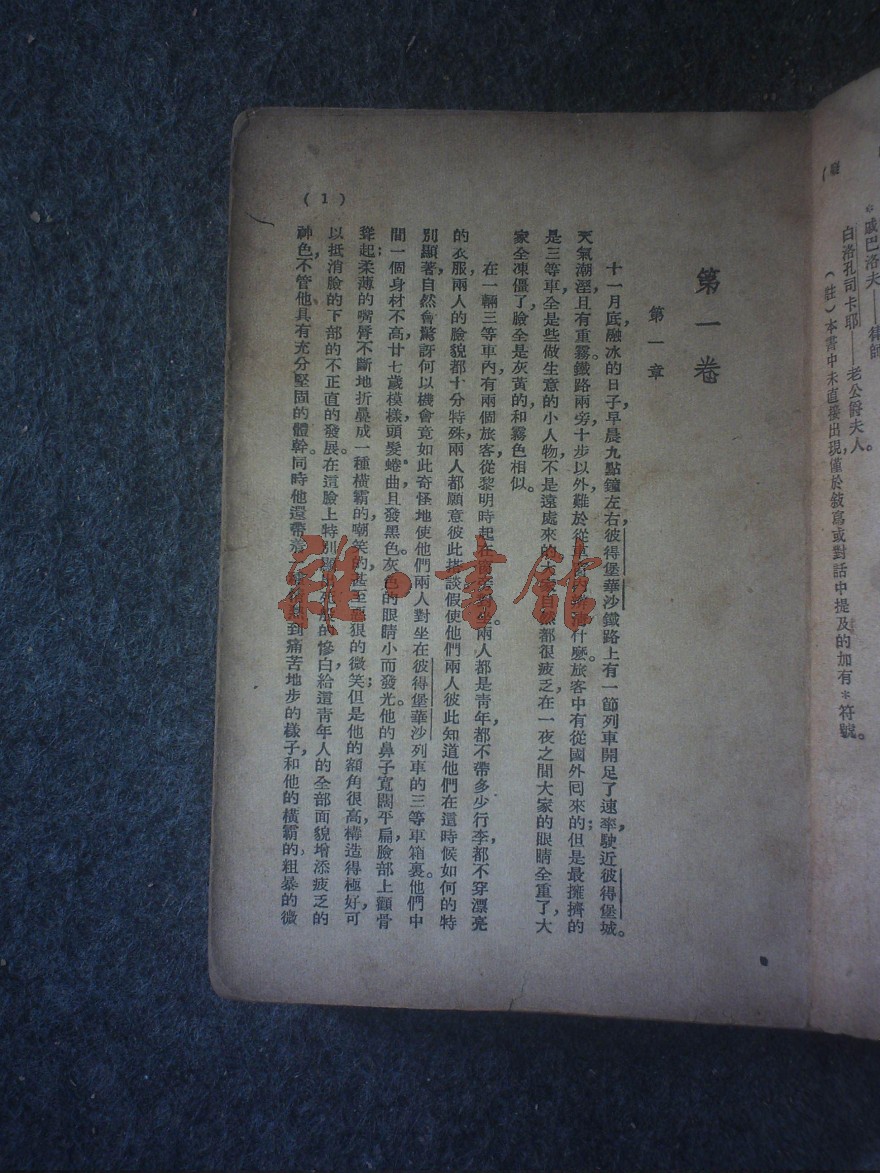 *戚巴洛夫——律師
白洛孔司卡耶——老公爵夫人。
(註)本書中未直接出現,僅於敍寫或對話中提及的加有*符號。
第一卷
第一章
十一月底,融冰的日子,早晨九點鐘左右,彼得堡華沙鐵路上有一節列車開足了速率,駛近彼得堡城。
天氣潮溼,且有重霧。鐵路兩旁,十步以外,難於從車窗內辨清什麼。旅客中有從國外囘來的;但是最擁擠的
是三等車,全是些做生意的小人物,不是遠處來的。大家自然都很疲乏,在一夜之間大家的眼睛全重了,大
家全凍僵了,臉全是灰黃的,和霧色相似。
在一輛三等車內,有兩個旅客從黎明時起在窗旁對坐。兩人都是靑年,都不帶多少行李,都不穿漂亮
的衣服,兩人的臉貌都十分特殊,兩人都願意彼此搭談。假使他們兩人彼此知道他們在這時候如何的特
別顯著,自然會驚訝何以機會竟如此奇怪地使他們兩人對坐在彼得堡華沙列車的三等車箱裏。他們中
間一個身材不高,廿七歲模樣,頭髮蜷曲,且發黑色。灰色的眼睛小而發光。他的鼻子寬闊平扁,臉部上顴骨
聳起;柔薄的嘴脣不斷地折疊成一種橫霸的,嘲笑的,甚至惡狠的微笑;但是他的額角很高,構造得極好,可
以抵消臉的下部的不正直的發展。在這臉上特別顯出死般的慘白,給這靑年人的全部面貌增添疲乏的
神色,不管他具有充分堅固的體幹。同時他還帶着到痛苦地步的樣子,和他的橫霸的、粗暴的微
(1)
雜·書館